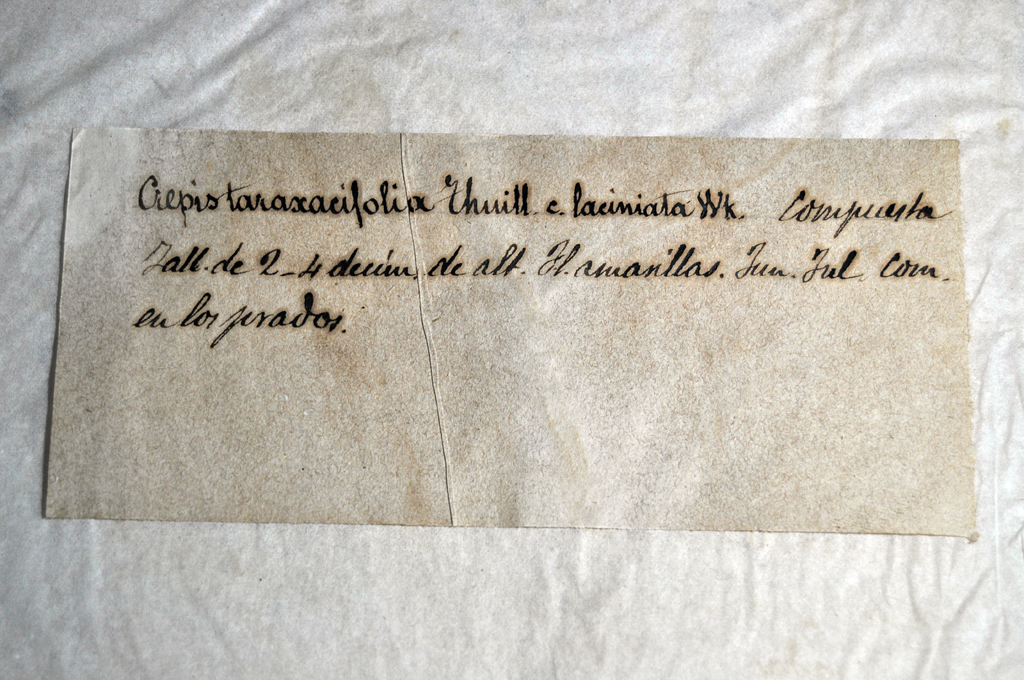 Crepis taraxacifolia Thuill. c. laciniata Wk. Compuesta
Tall. de 2-4 decim. de alt. Fl. amarillas. Jun. Jul. Com.
en los prados.